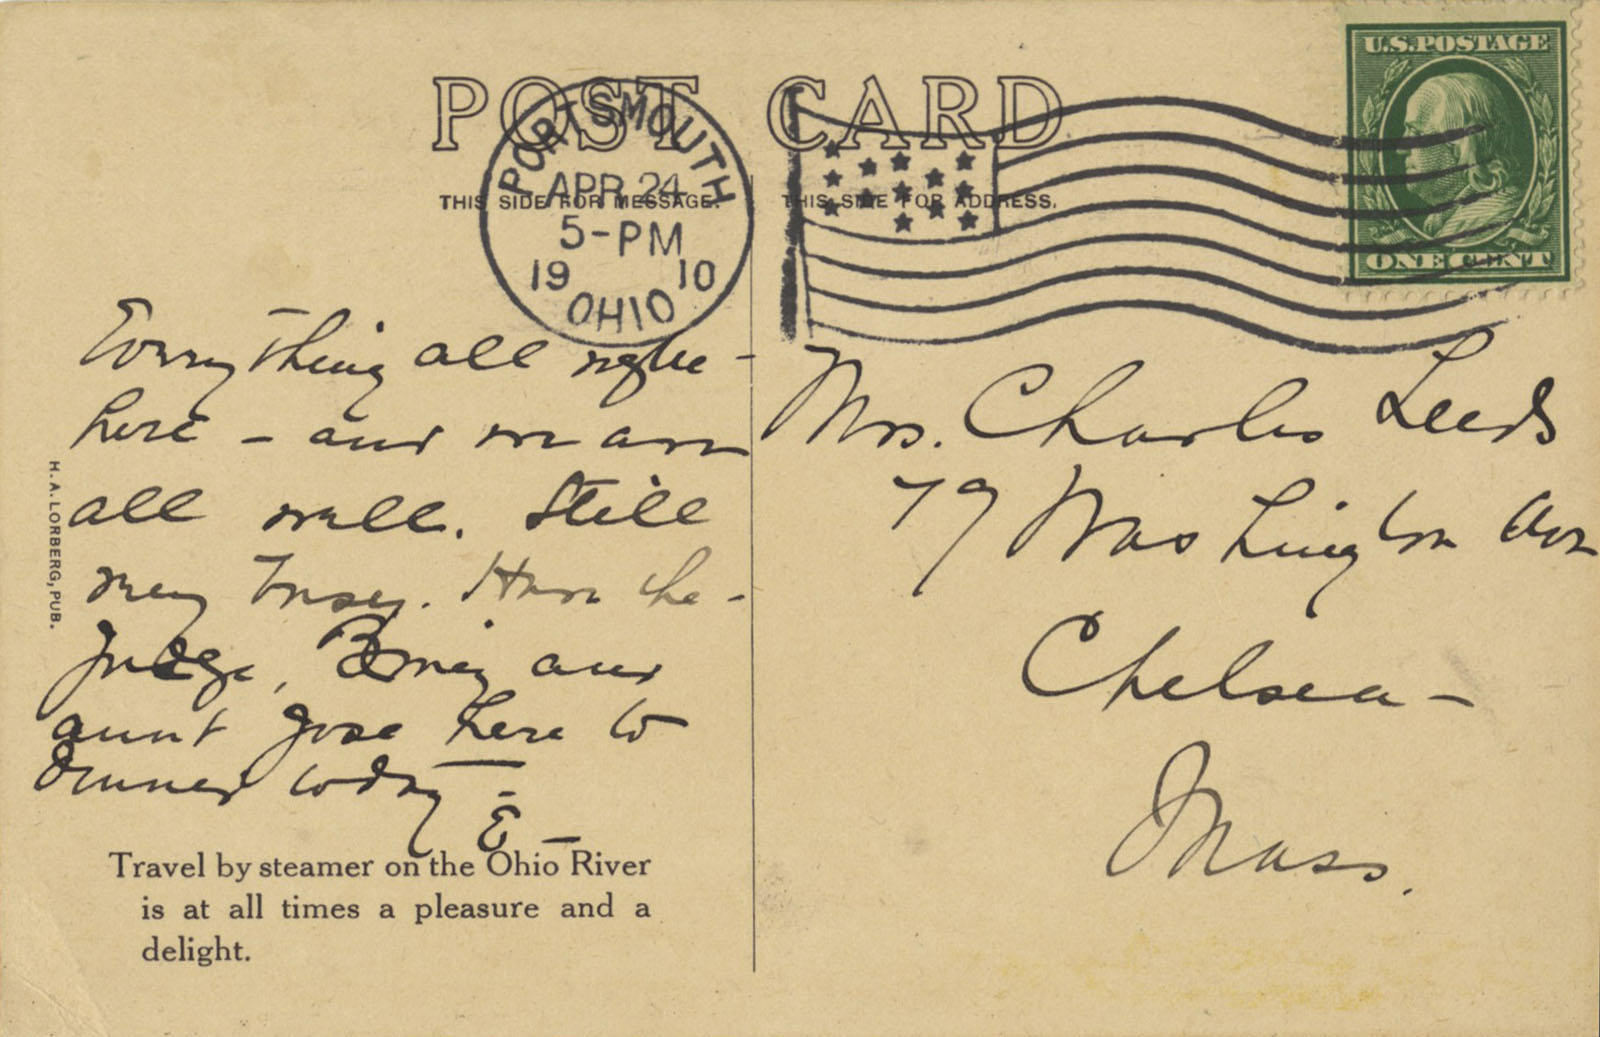 POST CARD
THIS SIDE FOR MESSAGE.
THIS SIDE FOR ADDRESS.
PORTSMOUTH
APR 24
5-PM
19 10
OHIO
U.S. POSTAGE
ONE CENT
Everything all right
here - and we are
all well. Still
very busy. Have the
Judge, and
aunt Jose here to
dinner today -
E -
H. A. LORBERG, PUB.
Travel by steamer on the Ohio River
is at all times a pleasure and a
delight.
Mrs. Charles Leeds
79 Washington Ave
Chelsea -
Mass.